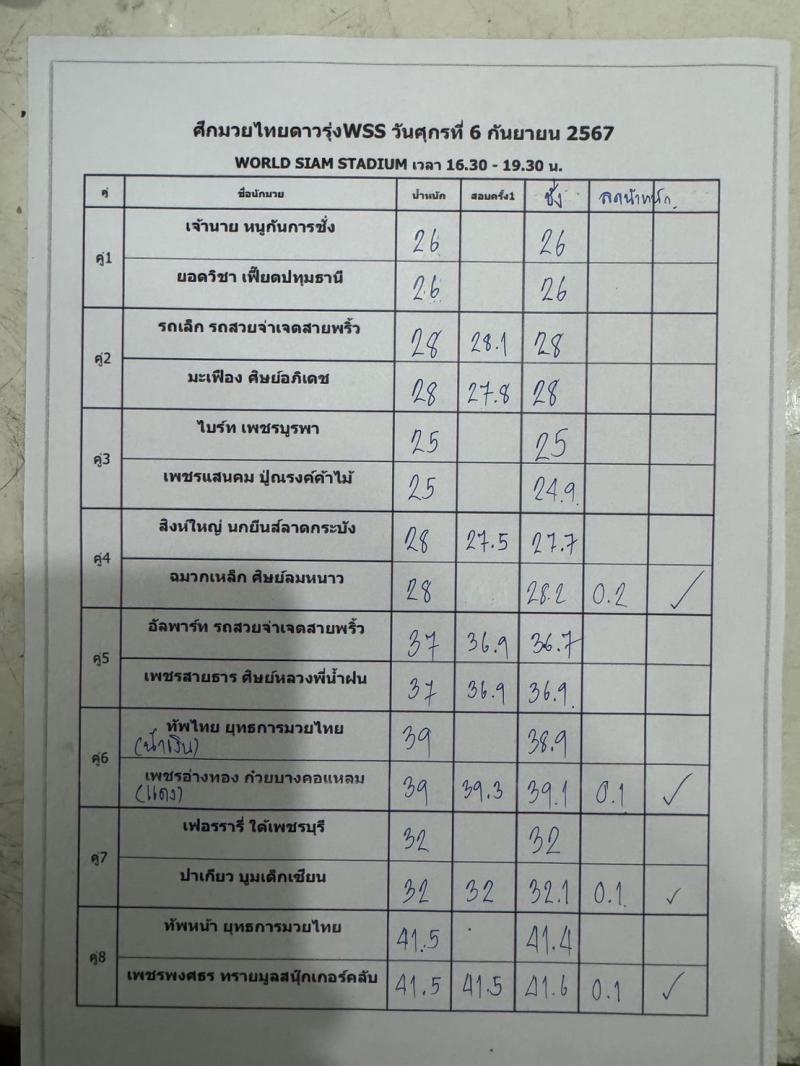 ศึกมวยไทยดาวรุ่งWSS วันศุกรที่ 6 กันยายน 2567
WORLD SIAM STADIUM เวลา 16.30 - 19.30 น.
คู่ ชื่อนักมวย น้ำหนัก สอบครั้ง1 ชั่ง ลดน้ำหนัก
คู่1
เจ้านาย หนูกันการช่ง 26 26
ยอดวิชา เฟี๊ยดปทุมธานี 26 26
คู่2
รถเล็ก รถสวยจ่าเจดสายพริ้ว 28 28.1 28
มะเฟือง ศิษย์อภิเดช 28 27.8 28
คู่3
ไบร์ท เพชรบูรพา 25 25
เพชรแสนคม ปู่ณรงค์ค้าไม้ 25 24.9
คู่4
สิงห์ใหญ่ นกยีนส์ลาดกระบัง 28 27.5 27.7
ฉมวกเหล็ก ศิษย์ลมหนาว 28 28.2 0.2 ✓
คู่5
อัลพาร์ท รถสวยจ่าเจดสายพริ้ว 37 36.9 36.7
เพชรสายธาร ศิษย์หลวงพี่น้ำฝน 37 36.9 36.9
คู่6
ทัพไทย ยุทธการมวยไทย 39 38.9
(น้ำเงิน)
เพชรอ่างทอง ก๋วยบางคอแหลม 39 39.3 39.1 0.1 ✓
(แดง)
คู่7
เฟอรรารี่ ใต้เพชรบุรี 32 32
ปาเกียว บูมเด็กเซียน 32 32 32.1 0.1 ✓
คู่8
ทัพหน้า ยุทธการมวยไทย 41.5 41.4
เพชรพงศธร ทรายมูลสนุ๊กเกอร์คลับ 41.5 41.5 41.6 0.1 ✓